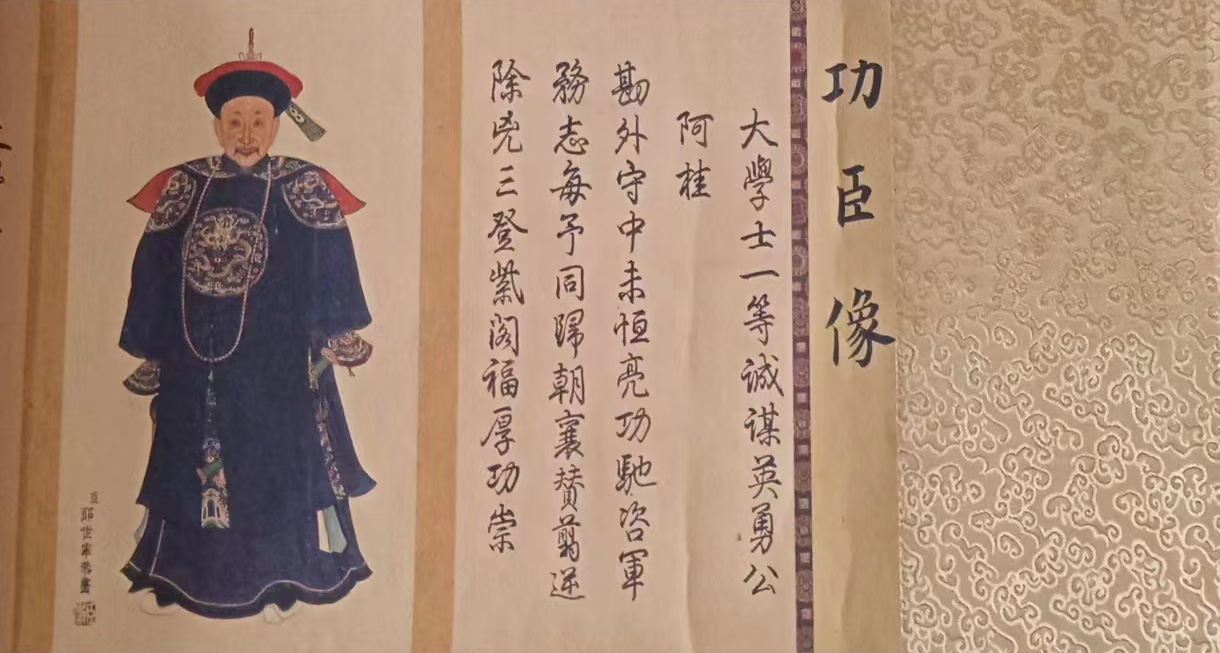 功臣像
大學士一等誠謀英勇公
阿桂
勘外守中未恒亮功馳咨軍
務志每予同歸朝襄賛翦逆
除兇三登紫阁福厚功崇
臣
郎世寧恭畫